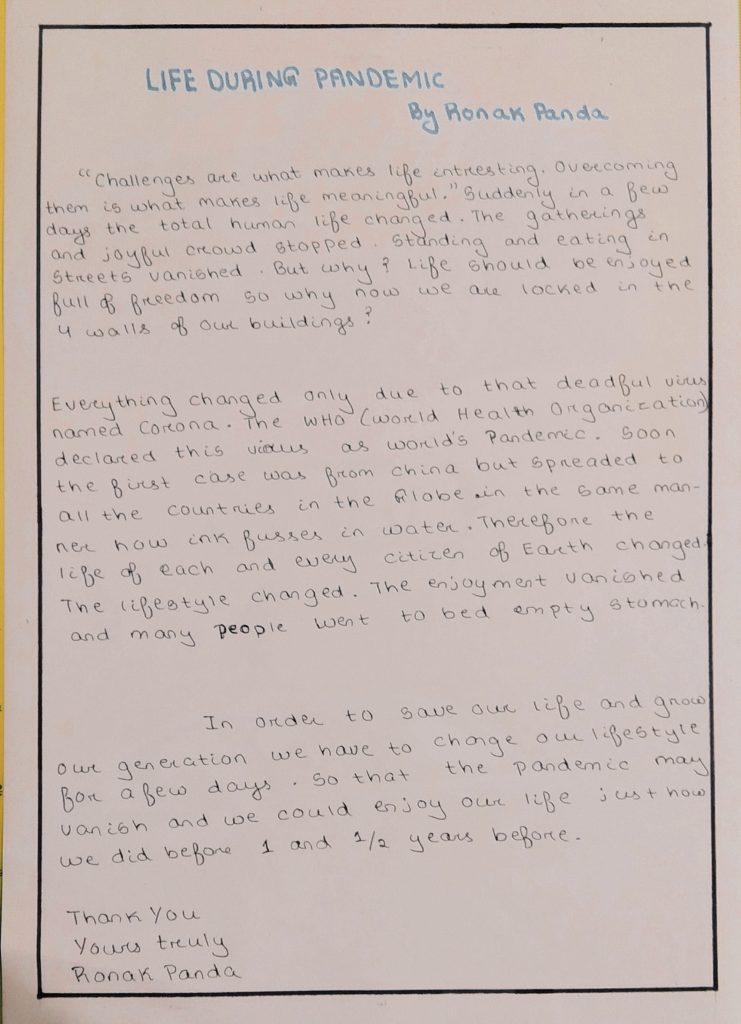 LIFE DURING PANDEMIC
By Ronak Panda
"Challenges are what makes life intresting. Overcoming
them is what makes life meaningful." Suddenly in a few
days the total human life changed. The gatherings
and joyful crowd stopped. Standing and eating in
streets vanished. But why? Life should be enjoyed
full of freedom so why now we are locked in the
4 walls of our buildings?
Everything changed only due to that deadful virus
named Corona. The WHO (World Health Organization)
declared this virus as world's Pandemic. Soon
the first case was from china but spreaded to
all the countries in the Globe in the same man-
ner how ink fusses in water. Therefore the
life of each and every citizen of Earth changed.
The lifestyle changed. The enjoyment vanished
and many people went to bed empty stomach.
In order to save our life and grow
our generation we have to change our lifestyle
for a few days. So that the pandemic may
vanish and we could enjoy our life just how
we did before 1 and 1/2 years before.
Thank You
Yours truly
Ronak Panda